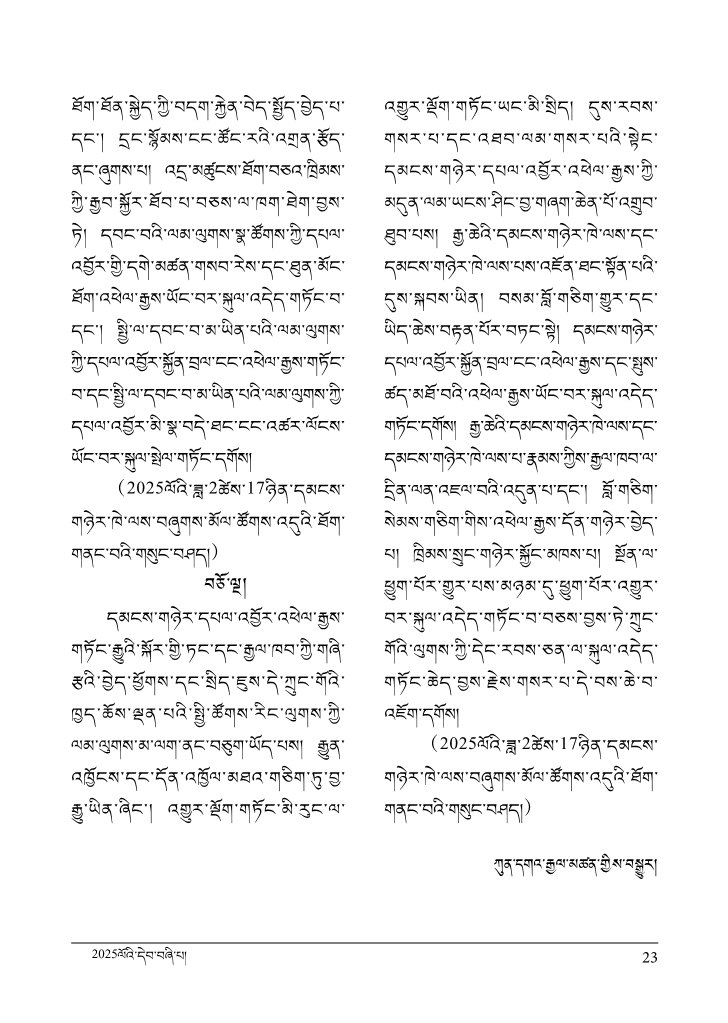 ཐོག་ཐོན་སྐྱེད་ཀྱི་བདག་རྐྱེན་བེད་སྤྱོད་བྱེད་པ་
དང་། དྲང་སྙོམས་ངང་ཚོང་རའི་འགྲན་རྩོད་
ནང་ཞུགས་པ། འདྲ་མཚུངས་ཐོག་བཅའ་ཁྲིམས་
ཀྱི་རྒྱབ་སྐྱོར་ཐོབ་པ་བཅས་ལ་ཁག་ཐེག་བྱས་
ཏེ། དབང་བའི་ལམ་ལུགས་སྣ་ཚོགས་ཀྱི་དཔལ་
འབྱོར་གྱི་དགེ་མཚན་གསབ་རེས་དང་ཐུན་མོང་
ཐོག་འཕེལ་རྒྱས་ཡོང་བར་སྐུལ་འདེད་གཏོང་བ་
དང་། སྤྱི་ལ་དབང་བ་མ་ཡིན་པའི་ལམ་ལུགས་
ཀྱི་དཔལ་འབྱོར་སྐྱོན་བྲལ་ངང་འཕེལ་རྒྱས་གཏོང་
བ་དང་སྤྱི་ལ་དབང་བ་མ་ཡིན་པའི་ལམ་ལུགས་ཀྱི་
དཔལ་འབྱོར་མི་སྣ་བདེ་ཐང་ངང་འཚར་ལོངས་
ཡོང་བར་སྐུལ་སྤེལ་གཏོང་དགོས།
(2025ལོའི་ཟླ་2ཚེས་17ཉིན་དམངས་
གཉེར་ཁེ་ལས་བཞུགས་མོལ་ཚོགས་འདུའི་ཐོག་
གནང་བའི་གསུང་བཤད།)
བཅོ་ལྔ།
དམངས་གཉེར་དཔལ་འབྱོར་འཕེལ་རྒྱས་
གཏོང་རྒྱུའི་སྐོར་གྱི་ཏང་དང་རྒྱལ་ཁབ་ཀྱི་གཞི་
རྩའི་བྱེད་ཕྱོགས་དང་སྲིད་ཇུས་དེ་ཀྲུང་གོའི་
ཁྱད་ཆོས་ལྡན་པའི་སྤྱི་ཚོགས་རིང་ལུགས་ཀྱི་
ལམ་ལུགས་མ་ལག་ནང་བཅུག་ཡོད་པས། རྒྱུན་
འཁྱོངས་དང་དོན་འཁྱོལ་མཐའ་གཅིག་ཏུ་བྱ་
རྒྱུ་ཡིན་ཞིང་། འགྱུར་ལྡོག་གཏོང་མི་རུང་ལ་
འགྱུར་ལྡོག་གཏོང་ཡང་མི་སྲིད། དུས་རབས་
གསར་པ་དང་འཐབ་ལམ་གསར་པའི་སྟེང་
དམངས་གཉེར་དཔལ་འབྱོར་འཕེལ་རྒྱས་ཀྱི་
མདུན་ལམ་ཡངས་ཤིང་བྱ་གཞག་ཆེན་པོ་འགྲུབ་
ཐུབ་པས། རྒྱ་ཆེའི་དམངས་གཉེར་ཁེ་ལས་དང་
དམངས་གཉེར་ཁེ་ལས་པས་འཇོན་ཐང་སྟོན་པའི་
དུས་སྐབས་ཡིན། བསམ་བློ་གཅིག་གྱུར་དང་
ཡིད་ཆེས་བརྟན་པོར་བཏང་སྟེ། དམངས་གཉེར་
དཔལ་འབྱོར་སྐྱོན་བྲལ་ངང་འཕེལ་རྒྱས་དང་སྤུས་
ཚད་མཐོ་བའི་འཕེལ་རྒྱས་ཡོང་བར་སྐུལ་འདེད་
གཏོང་དགོས། རྒྱ་ཆེའི་དམངས་གཉེར་ཁེ་ལས་དང་
དམངས་གཉེར་ཁེ་ལས་པ་རྣམས་ཀྱིས་རྒྱལ་ཁབ་ལ་
དྲིན་ལན་འཇལ་བའི་འདུན་པ་དང་། བློ་གཅིག་
སེམས་གཅིག་གིས་འཕེལ་རྒྱས་དོན་གཉེར་བྱེད་
པ། ཁྲིམས་སྲུང་གཉེར་སྐྱོང་མཁས་པ། སྔོན་ལ་
ཕྱུག་པོར་གྱུར་པས་མཉམ་དུ་ཕྱུག་པོར་འགྱུར་
བར་སྐུལ་འདེད་གཏོང་བ་བཅས་བྱས་ཏེ་ཀྲུང་
གོའི་ལུགས་ཀྱི་དེང་རབས་ཅན་ལ་སྐུལ་འདེད་
གཏོང་ཆེད་བྱས་རྗེས་གསར་པ་དེ་བས་ཆེ་བ་
འཇོག་དགོས།
(2025ལོའི་ཟླ་2ཚེས་17ཉིན་དམངས་
གཉེར་ཁེ་ལས་བཞུགས་མོལ་ཚོགས་འདུའི་ཐོག་
གནང་བའི་གསུང་བཤད།)
ཀུན་དགའ་རྒྱལ་མཚན་གྱིས་བསྒྱུར།
2025ལོའི་དེབ་བཞི་པ།
23